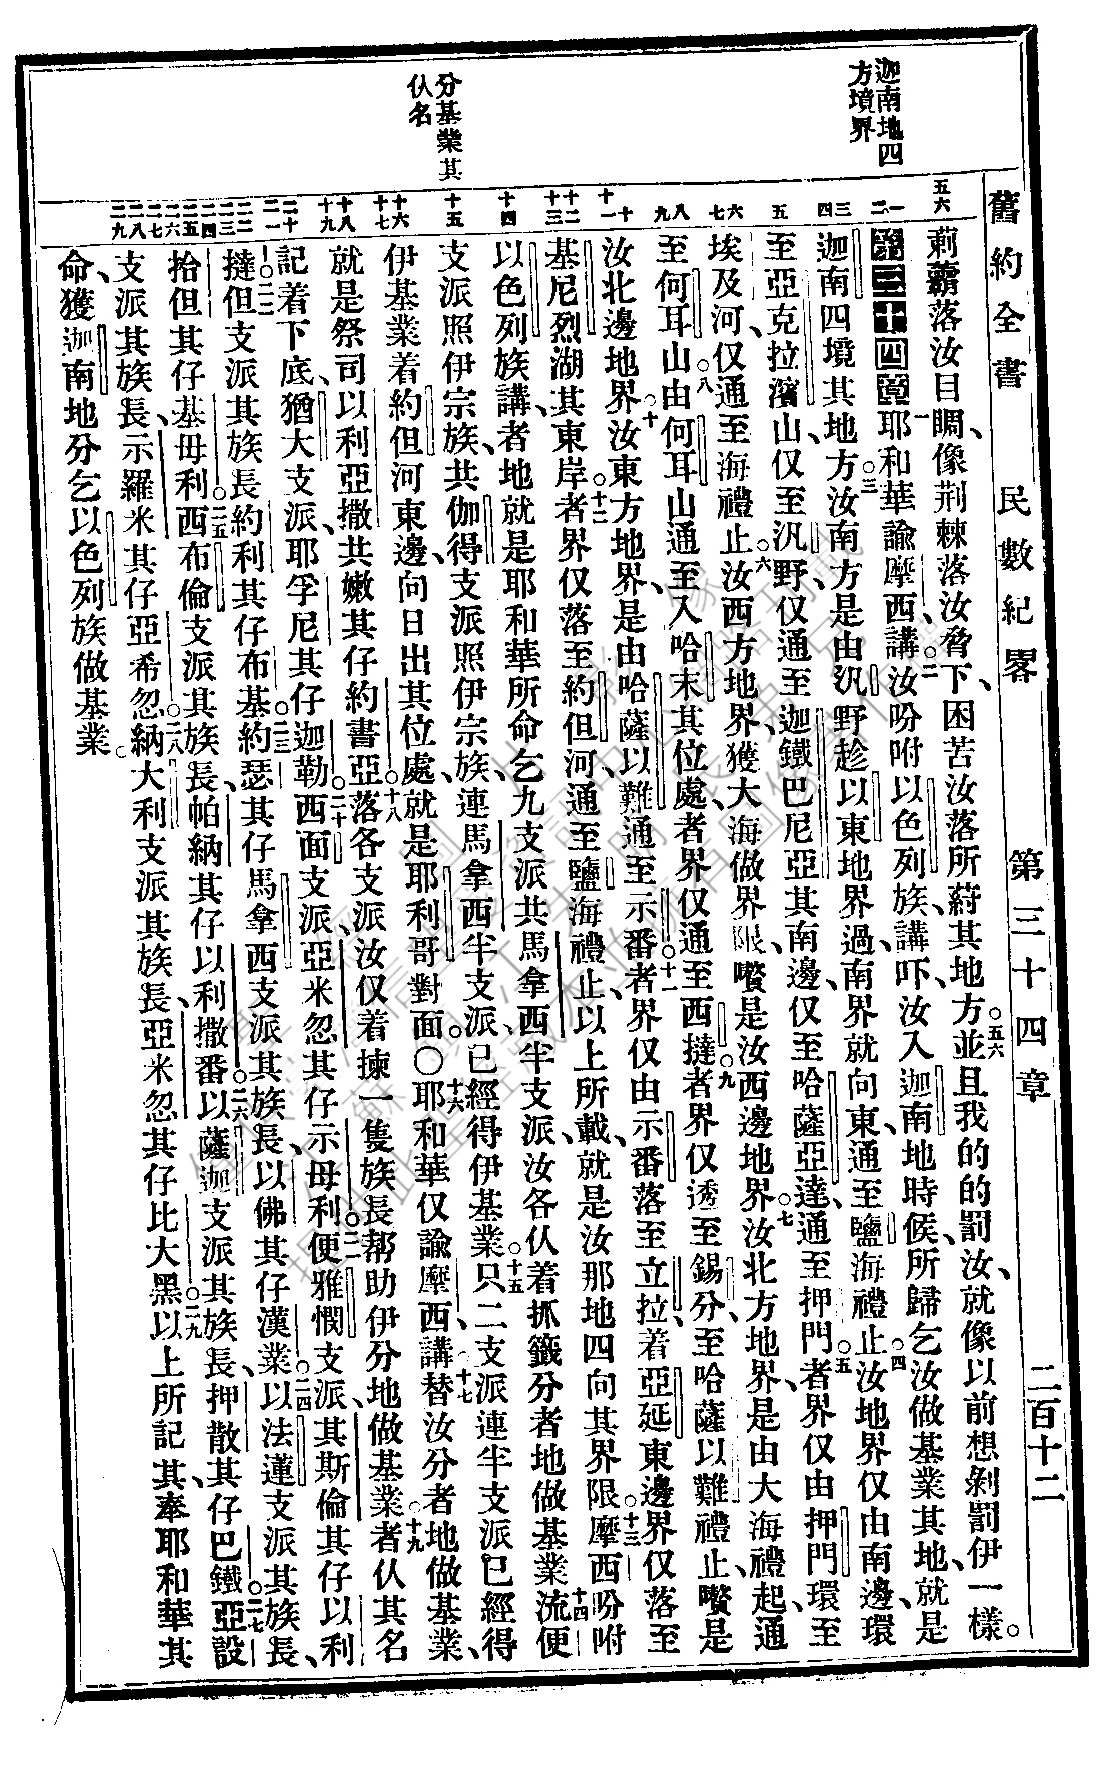 舊約全書 民數紀畧 第三十四章 二百十二
迦南地四方墳界
分基業其仈名
五六
莿霸落汝目瞯、像荆棘落汝脅下、困苦汝落所䓯其地方。五六並且我的的罰汝、就像以前想剝罰伊一樣。
一二
第三十四章一耶和華諭摩西講、二汝吩咐以色列族講、吓、汝入迦南地時候、所歸乞汝做基業其地、就是
三四
迦南四境其地方。三汝南方是由汎野趁以東地界過、南界就向東通至鹽海禮止。四汝地界仅由南邊、環
五
至亞克拉濱山、仅至汎野、仅通至迦鐵巴尼亞其南邊、仅至哈薩亞達、通至押門。五者界仅由押門、環至
六七
埃及河、仅通至海禮止。六汝西方地界、獲大海做界限、嚽是汝西邊地界。七汝北方地界、是由大海禮起、通
八九
至何耳山。八由何耳山通至入哈末其位處、者界仅通至西撻。九者界仅透至錫分、至哈薩以難禮止、嚽是
十十一
汝北邊地界。十汝東方地界、是由哈薩以難通至示番。十一者界仅由示番落至立拉、着亞延東邊、界仅落至
十二十三
基尼烈湖其東岸。十二者界仅落至約但河、通至鹽海禮止、以上所載、就是汝那地四向其界限。十三摩西吩咐
十四
以色列族講、者地就是耶和華所命乞九支派共馬拿西半支派、汝各仈着抓籤分者地做基業。十四流便
十五
支派照伊宗族、共伽得支派照伊宗族、連馬拿西半支派、已經得伊基業。十五只二支派連半支派、已經得
十六十七
伊基業着約但河東邊、向日出其位處、就是耶利哥對面。○十六耶和華仅諭摩西講、十七替汝分者地做基業、
十八十九
就是祭司以利亞撒、共嫩其仔約書亞。十八落各支派、汝仅着揀一隻族長、帮助伊分地做基業。十九者仈其名
二十二一
記着下底、猶大支派、耶孚尼其仔迦勒。二十西面支派、亞米忽其仔示母利。二一便雅憫支派、其斯倫其仔以利
二二二三
撻。二二但支派其族長、約利其仔布基。二三約瑟其仔馬拿西支派其族長、以佛其仔漢業。二四以法蓮支派其族長、
二四二五二六二七
拾但其仔基母利。二五西布倫支派其族長、帕納其仔以利撒番。二六以薩迦支派其族長、押散其仔巴鐵。二七亞設
二八二九
支派其族長、示羅米其仔亞希忽。二八納大利支派其族長、亞米忽其仔比大黑。二九以上所記其、奉耶和華其
命、獲迦南地分乞以色列族做基業。